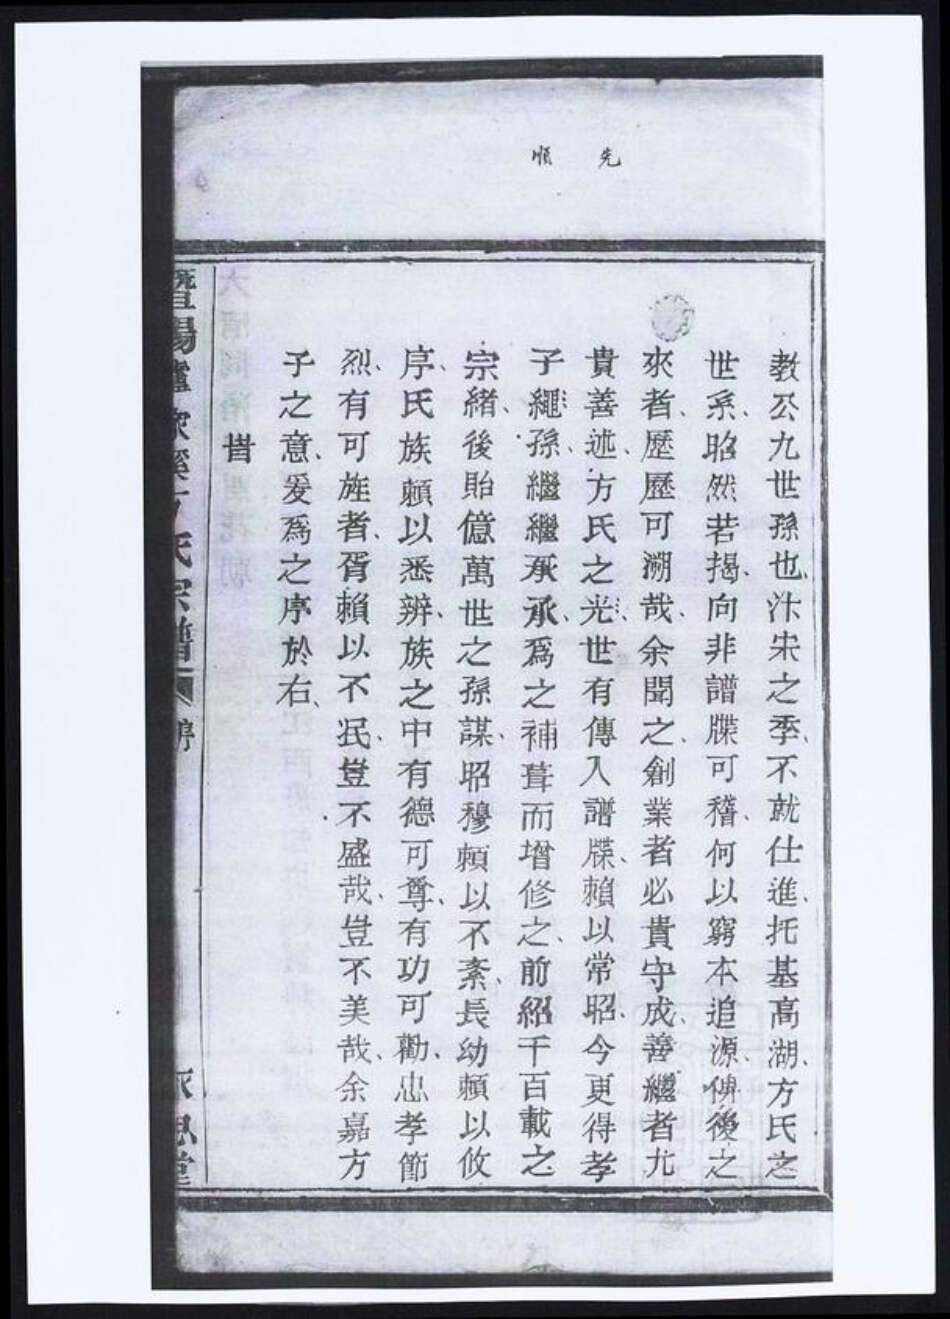 先 順
教公九世孫也汴宋之季不就仕進托基高湖方氏之
世系昭然若揭向非譜牒可稽何以窮本追源俾後之
來者歷歷可溯哉余聞之創業者必貴守成善繼者尤
貴善述方氏之光世有傳入譜牒賴以常昭今更得孝
子繩孫繼繼承承為之補葺而增修之前紹千百載之
宗緒後貽億萬世之孫謀昭穆賴以不紊長幼賴以攸
序氏族賴以悉辨族之中有德可尊有功可勸忠孝節
烈有可旌者胥賴以不泯豈不盛哉豈不美哉余嘉方
子之意爰為之序於右
旹
暨陽 氏宗譜 永思堂